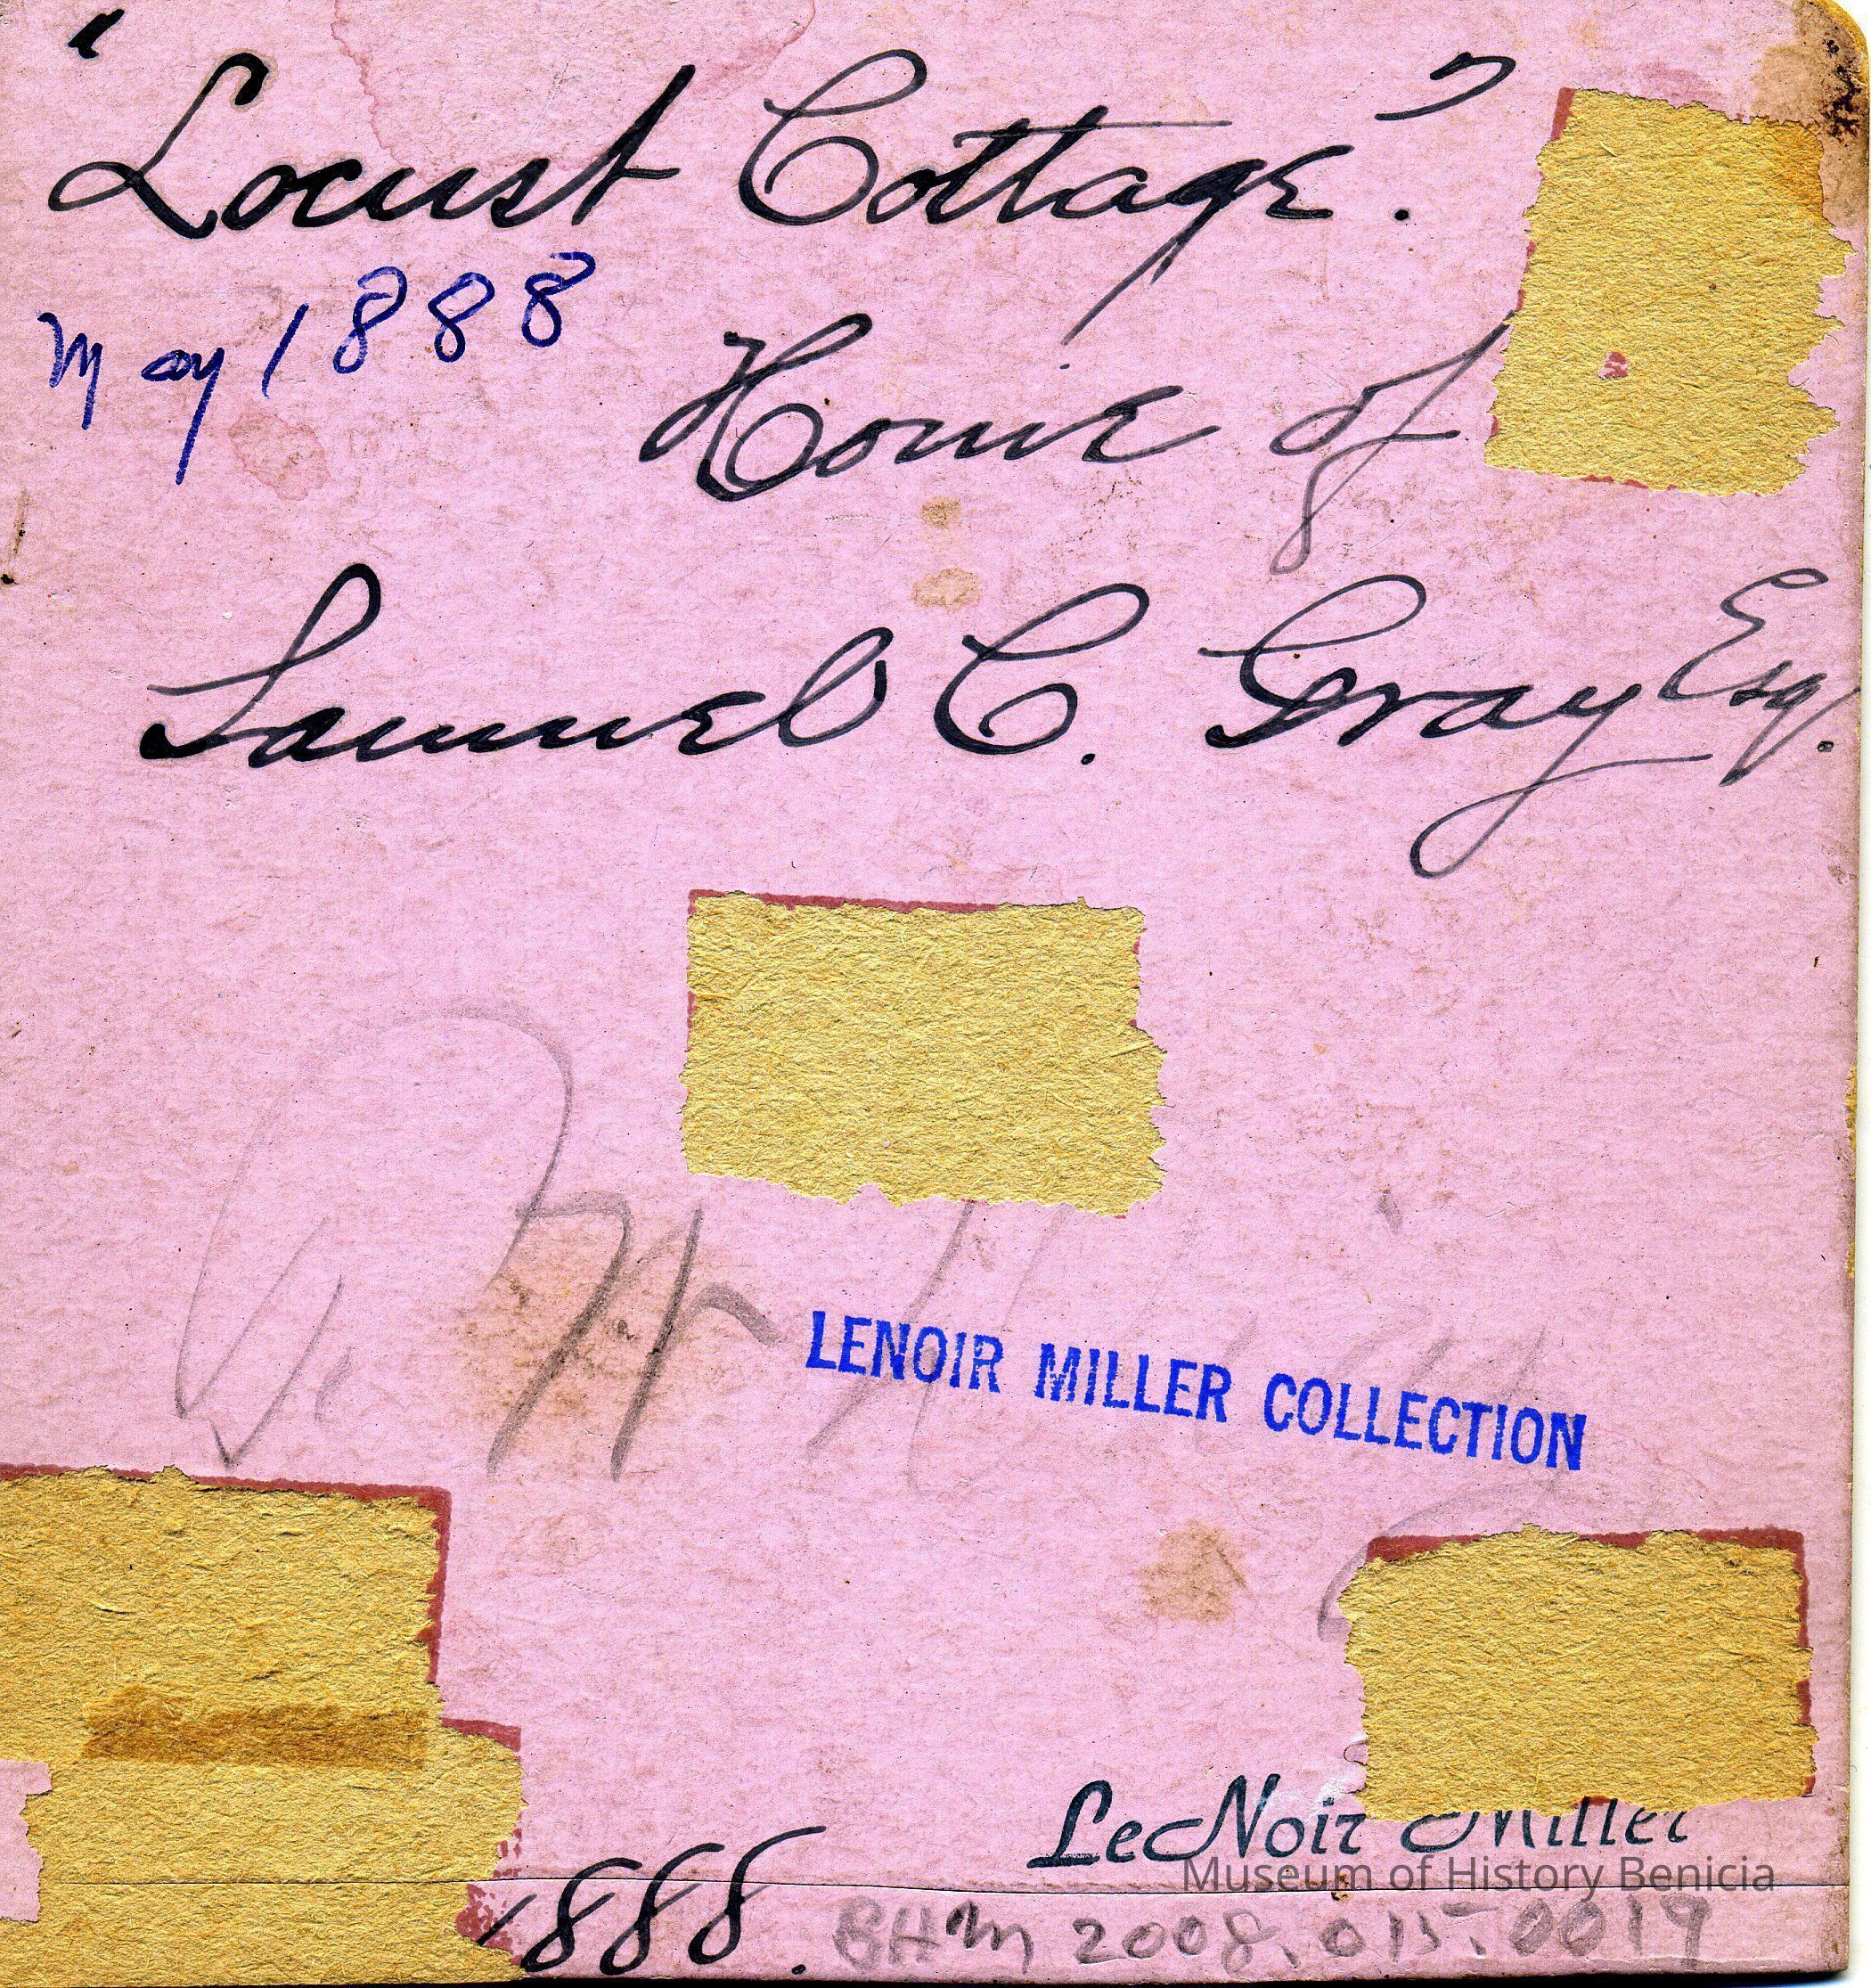 "Locust Cottage."
May 1888
Home of
Samuel C. Gray Esq.
LENOIR MILLER COLLECTION
LeNoir Miller
Museum of History Benicia
1888.
BHM 2008.015.0019